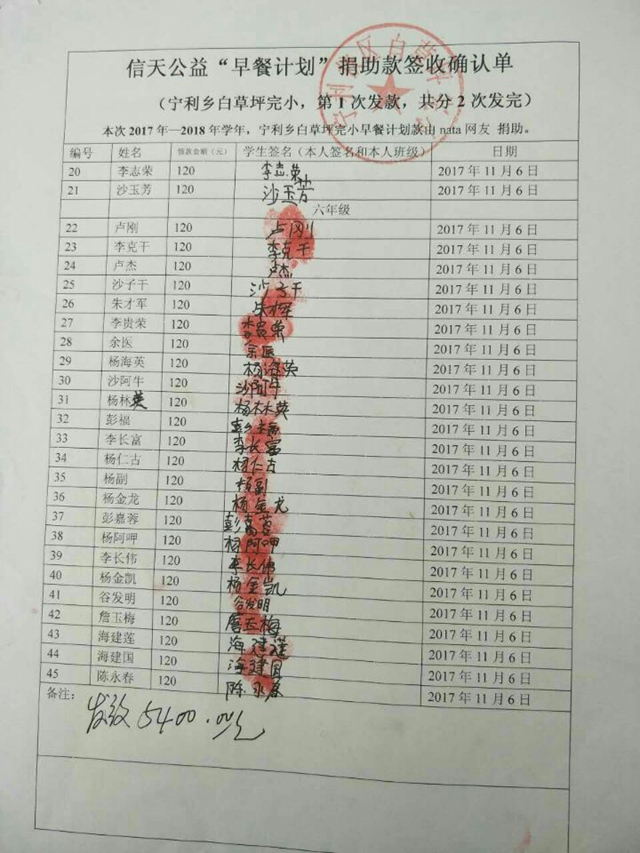 信天公益“早餐计划”捐助款签收确认单
（宁利乡白草坪完小，第1次发款，共分2次发完）
本次2017年—2018年学年，宁利乡白草坪完小早餐计划款由nata网友 捐助。
编号 姓名 领款金额（元） 学生签名（本人签名和本人班级） 日期
20 李志荣 120 李志荣 2017年11月6日
21 沙玉芳 120 沙玉芳 2017年11月6日
六年级
22 卢刚 120 卢刚 2017年11月6日
23 李克干 120 李克干 2017年11月6日
24 卢杰 120 卢杰 2017年11月6日
25 沙子干 120 沙子干 2017年11月6日
26 朱才军 120 2017年11月6日
27 李贵荣 120 李贵荣 2017年11月6日
28 余医 120 余医 2017年11月6日
29 杨海英 120 杨海英 2017年11月6日
30 沙阿牛 120 沙阿牛 2017年11月6日
31 杨林英 120 杨林英 2017年11月6日
32 彭福 120 彭福 2017年11月6日
33 李长富 120 李长富 2017年11月6日
34 杨仁古 120 杨仁古 2017年11月6日
35 杨副 120 杨副 2017年11月6日
36 杨金龙 120 杨金龙 2017年11月6日
37 彭嘉蓉 120 彭嘉蓉 2017年11月6日
38 杨阿呷 120 杨阿呷 2017年11月6日
39 李长伟 120 李长伟 2017年11月6日
40 杨金凯 120 杨金凯 2017年11月6日
41 谷发明 120 谷发明 2017年11月6日
42 詹玉梅 120 詹玉梅 2017年11月6日
43 海建莲 120 海建莲 2017年11月6日
44 海建国 120 海建国 2017年11月6日
45 陈永春 120 陈永春 2017年11月6日
备注：
发放5400.00元